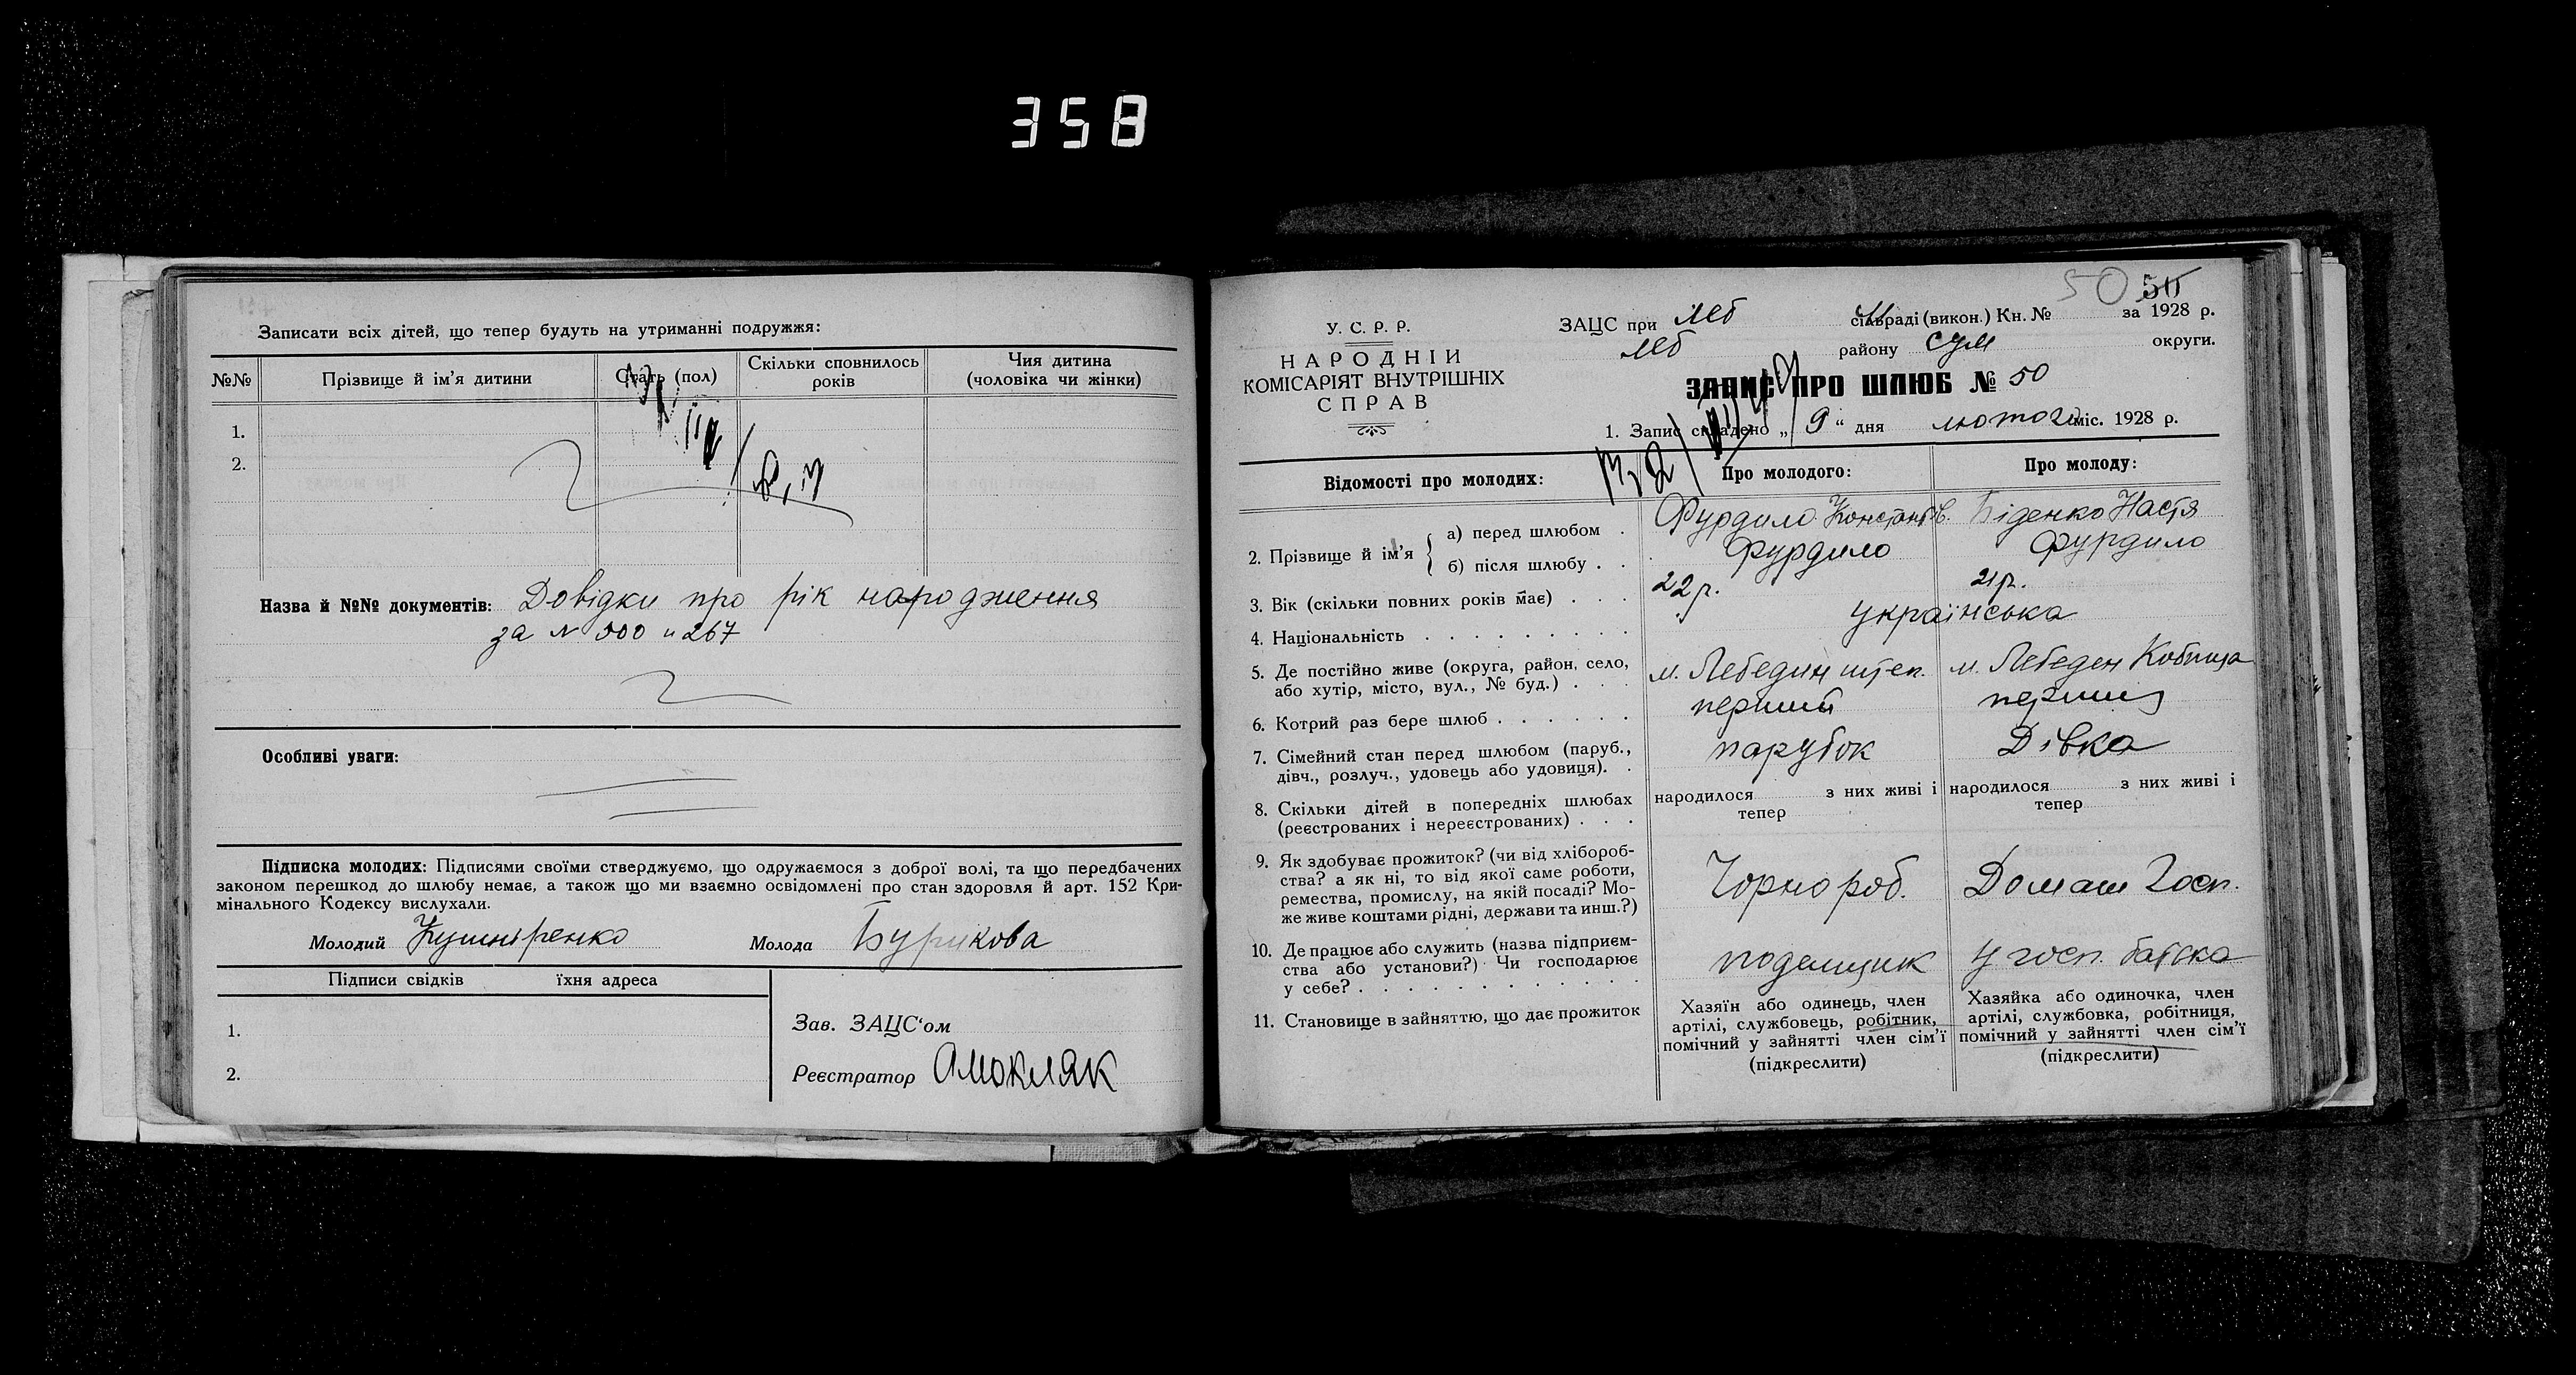 358
Записати всіх дітей, що тепер будуть на утриманні подружжя:
№№ Прізвище й ім'я дитини Стать (пол) Скільки сповнилось років Чия дитина (чоловіка чи жінки)
1.
2.
Назва й №№ документів: Довідки про рік народження
за N 500 и 267
Особливі уваги:
Підписка молодих: Підписами своїми стверджуємо, що одружаємося з доброї волі, та що передбачених
законом перешкод до шлюбу немає, а також що ми взаємно освідомлені про стан здоровля й арт. 152 Кри-
мінального Кодексу вислухали.
Молодий Кушніренко Молода Бурикова
Підписи свідків їхня адреса
1.
2.
Зав. ЗАЦС'ом
Реєстратор АМокляк
50 50
У. С. Р. Р.
НАРОДНІЙ
КОМІСАРІЯТ ВНУТРІШНІХ
СПРАВ
ЗАЦС при Леб сільраді (викон.) Кн. № за 1928 р.
Леб району Сум округи.
ЗАПИС ПРО ШЛЮБ № 50
1. Запис складено „ 9 “ дня лютого міс. 1928 р.
Відомості про молодих: Про молодого: Про молоду:
2. Прізвище й ім'я
а) перед шлюбом . Фурдило Констянтів. Біденко Настя
б) після шлюбу . . Фурдило Фурдило
3. Вік (скільки повних років має) . . . 22 р. 21 р.
4. Національність . . . . . . . . . українська
5. Де постійно живе (округа, район, село,
або хутір, місто, вул., № буд.) . . . м. Лебедин штеп. м. Лебеден Кобища
6. Котрий раз бере шлюб . . . . . . перший перший
7. Сімейний стан перед шлюбом (паруб.,
дівч., розлуч., удовець або удовиця). . парубок Дівка
8. Скільки дітей в попередніх шлюбах
(реєстрованих і нереєстрованих) . . .
народилося з них живі і тепер
народилося з них живі і тепер
9. Як здобуває прожиток? (чи від хлібороб-
ства? а як ні, то від якої саме роботи,
ремества, промислу, на якій посаді? Мо-
же живе коштами рідні, держави та инш.?)
Чорнороб. Домаш Госп.
10. Де працює або служить (назва підприєм-
ства або установи?) Чи господарює
у себе? . . . . . . . . . . . .
поденщик У госп. батька
11. Становище в зайняттю, що дає прожиток
Хазяїн або одинець, член
артілі, службовець, робітник,
помічний у зайнятті член сім'ї
(підкреслити)
Хазяйка або одиночка, член
артілі, службовка, робітниця,
помічний у зайнятті член сім'ї
(підкреслити)